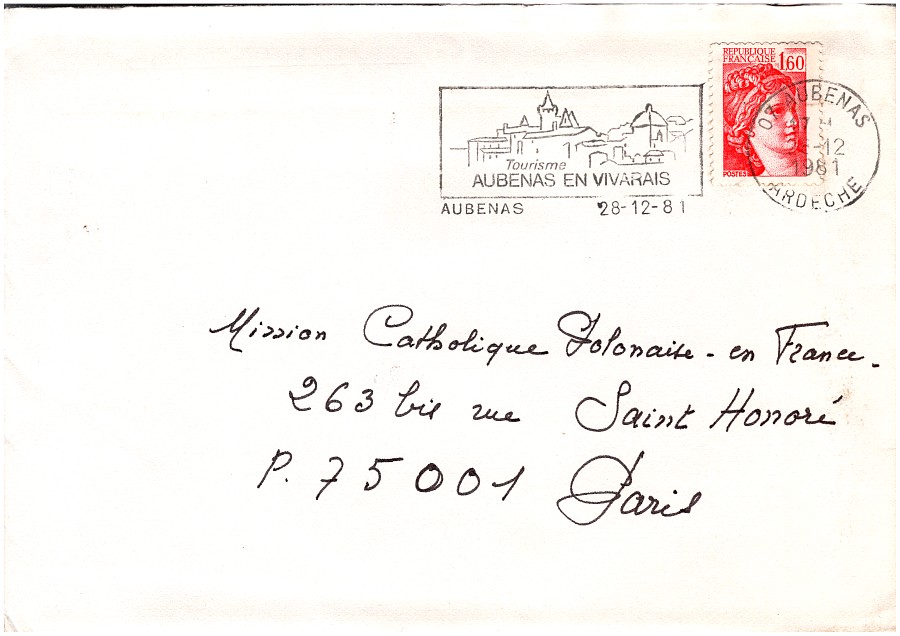 REPUBLIQUE
FRANCAISE 1,60
POSTES
07 AUBENAS
-12
1981
ARDECHE
Tourisme
AUBENAS EN VIVARAIS
AUBENAS 28-12-81
Mission Catholique Polonaise - en France.
263 bis rue Saint Honoré
P. 75001 Paris